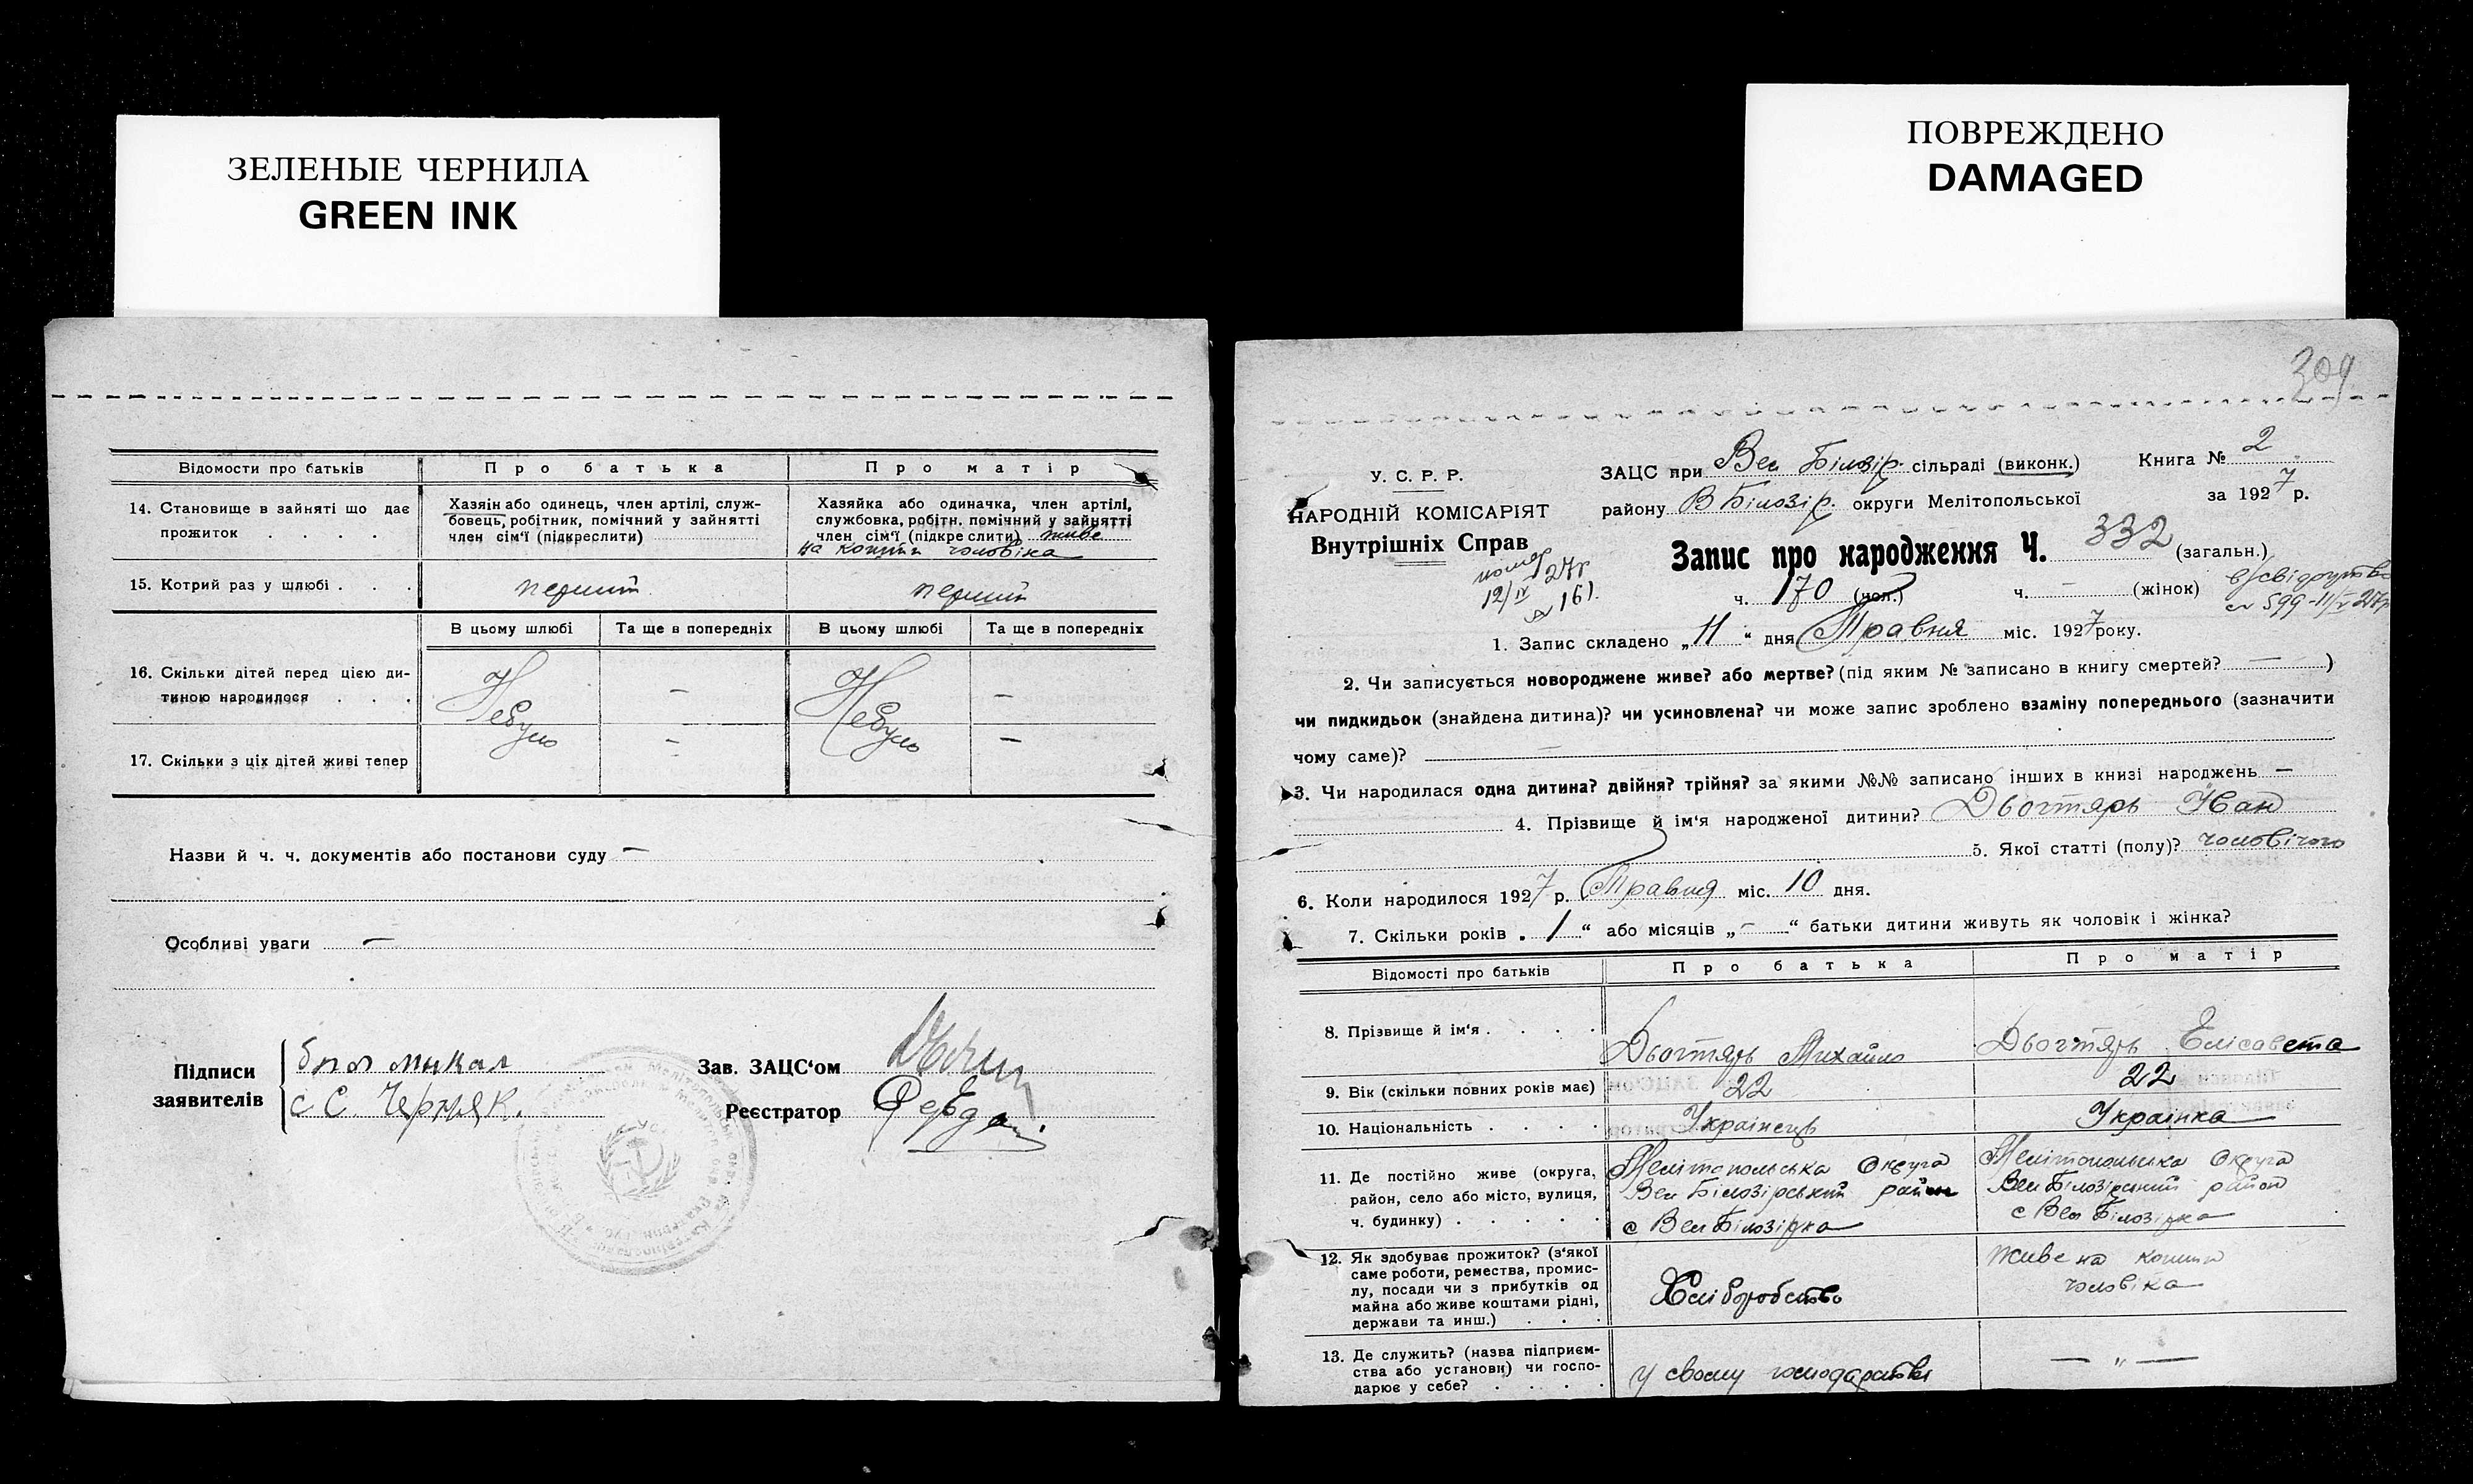 ЗЕЛЕНЫЕ ЧЕРНИЛА
GREEN INK
ПОВРЕЖДЕНО
DAMAGED
Відомости про батьків Про батька Про матір
14. Становище в зайняті що дає прожиток . . . .
Хазяін або одинець, член артілі, служ-
бовець, робітник, помічний у зайнятті
член сім'ї (підкреслити)
Хазяйка або одиначка, член артілі,
службовка, робітн. помічний у зайнятті
член сім'ї (підкре слити) живе
на кошти чоловіка
15. Котрий раз у шлюбі . . . перший перший
В цьому шлюбі Та ще в попередніх В цьому шлюбі Та ще в попередніх
16. Скільки дітей перед цією ди-
тиною народилося . . . Небуло — Небуло —
17. Скільки з ціх дітей живі тепер — —
Назви й ч. ч. документів або постанови суду —
Особливі уваги —
Підписи
заявителів
Зав. ЗАЦС'ом
Реєстратор
309
У. С. Р. Р.
НАРОДНІЙ КОМІСАРІЯТ
Внутрішніх Справ
12/IV 27г
161
ЗАЦС при Вел Білозір. сільраді (виконк.) Книга № 2
району В Білозір. округи Мелітопольської за 1927 р.
Запис про народження Ч. 332 (загальн.)
ч. 170 (чол.) ч. — (жінок)
599-11/V 27р
1. Запис складено „11“ дня Травня міс. 1927 року.
2. Чи записується новороджене живе? або мертве? (під яким № записано в книгу смертей? — )
чи пидкидьок (знайдена дитина)? чи усиновлена? чи може запис зроблено взаміну попереднього (зазначити
чому саме)? —
3. Чи народилася одна дитина? двійня? трійня? за якими №№ записано інших в книзі народжень —
4. Прізвище й ім'я народженої дитини? Дьогтярь Іван
5. Якої статті (полу)? чоловічого
6. Коли народилося 1927 р. Травня міс. 10 дня.
7. Скільки років „ 1 “ або місяців „ — “ батьки дитини живуть як чоловік і жінка?
Відомості про батьків Про батька Про матір
8. Прізвище й ім'я . . . . Дьогтярь Михайло Дьогтярь Елісавета
9. Вік (скільки повних років має) 22 22
10. Національність . . . . Українець Українка
11. Де постійно живе (округа,
район, село або місто, вулиця,
ч. будинку) . . . . .
Мелітопольська Округа
Вел Білозірський район
с Вел Білозірка
Мелітопольська Округа
Вел Білозірський район
с Вел Білозірка
12. Як здобуває прожиток? (з'якої
саме роботи, ремества, промис-
лу, посади чи з прибутків од
майна або живе коштами рідні,
держави та инш.) . . .
Хліборобство
живе на кошти
чоловіка
13. Де служить? (назва підприєм-
ства або установи) чи госпо-
дарює у себе? . . . .
у своему господарстві
— „ —